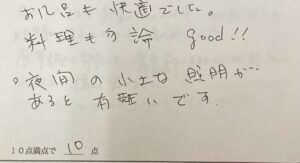 お風呂も快適でした。
料理も勿論 good!!
夜間の小さな照明が…
あると有難いです
10点満点で 10 点